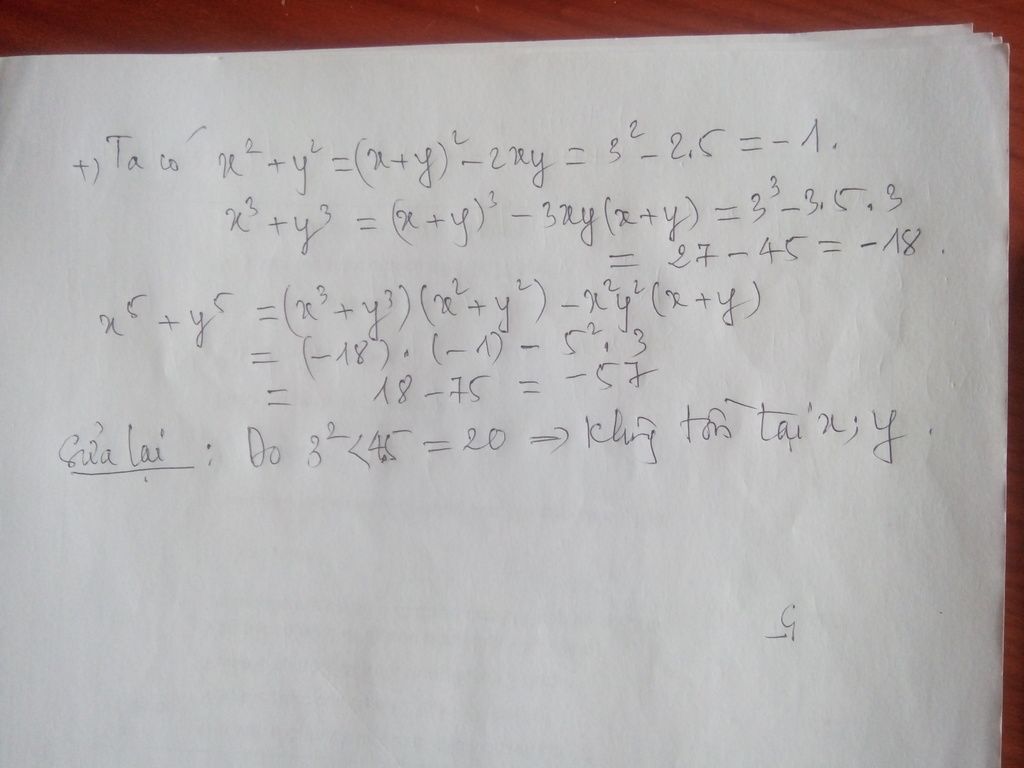 +) Ta có x² + y² = (x+y)² - 2xy = 3² - 2.5 = -1.
x³ + y³ = (x+y)³ - 3xy(x+y) = 3³ - 3.5.3
= 27 - 45 = -18.
x⁵ + y⁵ = (x³ + y³)(x² + y²) - x²y²(x+y)
= (-18).(-1) - 5².3
= 18 - 75 = -57
Sửa lại : Do 3² < 4.5 = 20 ⇒ không tồn tại x; y.